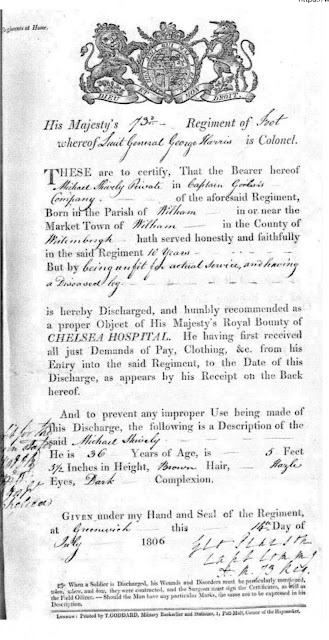 https://
Regiments at Home.
DIEU ET MON DROIT
His Majesty's 73d Regiment of Foot
whereof Lieut General George Harris is Colonel.
THESE are to certify, That the Bearer hereof
Michael Shively Private in Captain
Company of the aforesaid Regiment,
Born in the Parish of Witham in or near the
Market Town of Witham in the County of
hath served honestly and faithfully
in the said Regiment 10 Years
But by being unfit for actual Service, and having
a Diseased leg
is hereby Discharged, and humbly recommended as
a proper Object of His Majesty's Royal Bounty of
CHELSEA HOSPITAL. He having first received
all just Demands of Pay, Clothing, &c. from his
Entry into the said Regiment, to the Date of this
Discharge, as appears by his Receipt on the Back
hereof.
And to prevent any improper Use being made of
this Discharge, the following is a Description of the
said Michael Shively
He is 36 Years of Age, is 5 Feet
5 1/2 Inches in Height, Brown Hair, Hazle
Eyes, Dark Complexion.
GIVEN under my Hand and Seal of the Regiment,
at Greenwich this 14th Day of
July 1806
Geo Pearson
☞ When a Soldier is Discharged, his Wounds and Disorders must be particularly mentioned,
when, where, and how, they were contracted, and the Surgeon must sign the Certificates, as well as
the Field Officer. — Should the Man have any particular Marks, the same not to be expressed in his
Description.
London: Printed by T. GODDARD, Military Bookseller and Stationer, 1, Pall-Mall, Corner of the Haymarket.